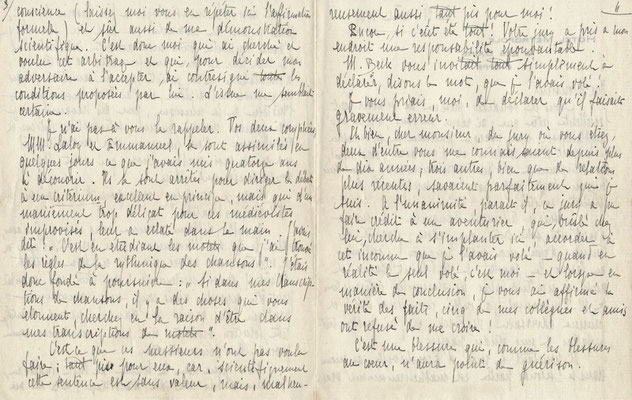 3/
conscience (laissez moi vous en répéter ici l'affirmation
formelle) et sûr aussi de ma démonstration
scientifique. C'est donc moi qui ai cherché et
voulu cet arbitrage et qui, pour décider mon
adversaire à l'accepter, ai contresigné toutes les
conditions proposées par lui. L'issue me semblait
certaine.
Je n'ai pas à vous la rappeler. Vos deux
MM. Laloy et Emmanuel, se sont assimilés en
quelques jours ce que j'avais mis quatorze ans
à découvrir. Ils se sont arrêtés pour diriger le débat
à un critérium, excellent en principe, mais qui d'un
maniement trop délicat pour des médiévistes
improvisés, leur a éclaté dans la main. J'avais
dit : "C'est en étudiant les motets que j'ai trouvé
les règles de la rythmique des chansons". J'étais
donc fondé à poursuivre : "Si dans mes transcrip-
tions de chansons, il y a des choses qui vous
étonnent, cherchez en la raison d'être dans
mes transcriptions de motets".
C'est ce que ces messieurs n'ont pas voulu
faire ; tant pis pour eux, car, scientifiquement
cette sentence est sans valeur, mais, malheu-
reusement aussi, tant pis pour moi !
Encore, si c'eût été tout ! Votre jury a pris à mon
endroit une responsabilité épouvantable.
M. Beck vous invitait tout simplement à
déclarer, disons le mot, que je l'avais volé !
Je vous priais, moi, de déclarer qu'il faisait
gravement erreur.
Eh bien, cher monsieur, du jury où vous étiez,
deux d'entre vous me connaissaient depuis plus
de dix années, trois autres, bien que de relations
plus récentes, savaient parfaitement qui je
suis. A l'unanimité paraît-il, ce jury a pu
faire crédit à un aventurier qui, brûlé chez
lui, cherche à s'implanter ici, accorder à
cet inconnu que je l'avais volé – quand en
réalité le seul volé, c'est moi – et lorsque en
manière de conclusion, je vous ai affirmé la
vérité des faits, cinq de mes collègues et amis
ont refusé de me croire !
C'est une blessure qui, comme les blessures
au cœur, n'aura point de guérison.